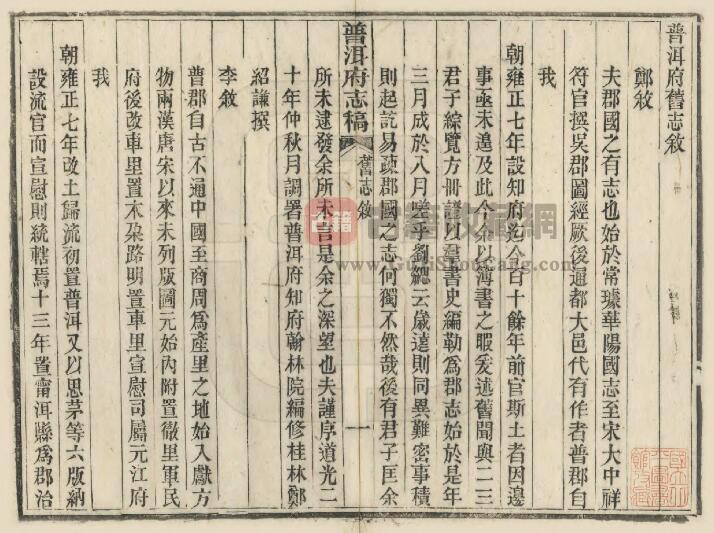 普洱府舊志敘
鄭敘
夫郡國之有志也始於常璩華陽國志至宋大中祥
符官撰吳郡圖經厥後通都大邑代有作者普郡自
我
朝雍正七年設知府迄今百十餘年前官斯土者因邊
事亟未遑及此今余以簿書之暇爰述舊聞與二三
君子綜覽方冊證以羣書史編勒爲郡志始於是年
三月成於八月嗟乎劉勰云歲遠則同異難密事積
則起訖易疎郡國之志何獨不然哉後有君子匡余
所未逮發余所未言是余之深望也夫謹序道光二
十年仲秋月調署普洱府知府翰林院編修桂林鄭
紹謙撰
李敘
普郡自古不通中國至商周爲產里之地始入獻方
物兩漢唐宋以來未列版圖元始內附置徹里軍民
府後改車里置木朶路明置車里宣慰司屬元江府
我
朝雍正七年改土歸流初置普洱又以思茅等六版納
設流官而宣慰則統轄焉十三年置甯洱縣爲郡治
普洱府志稿
舊志敘
一
古籍
古籍收藏網
www.GuJiShouCang.com